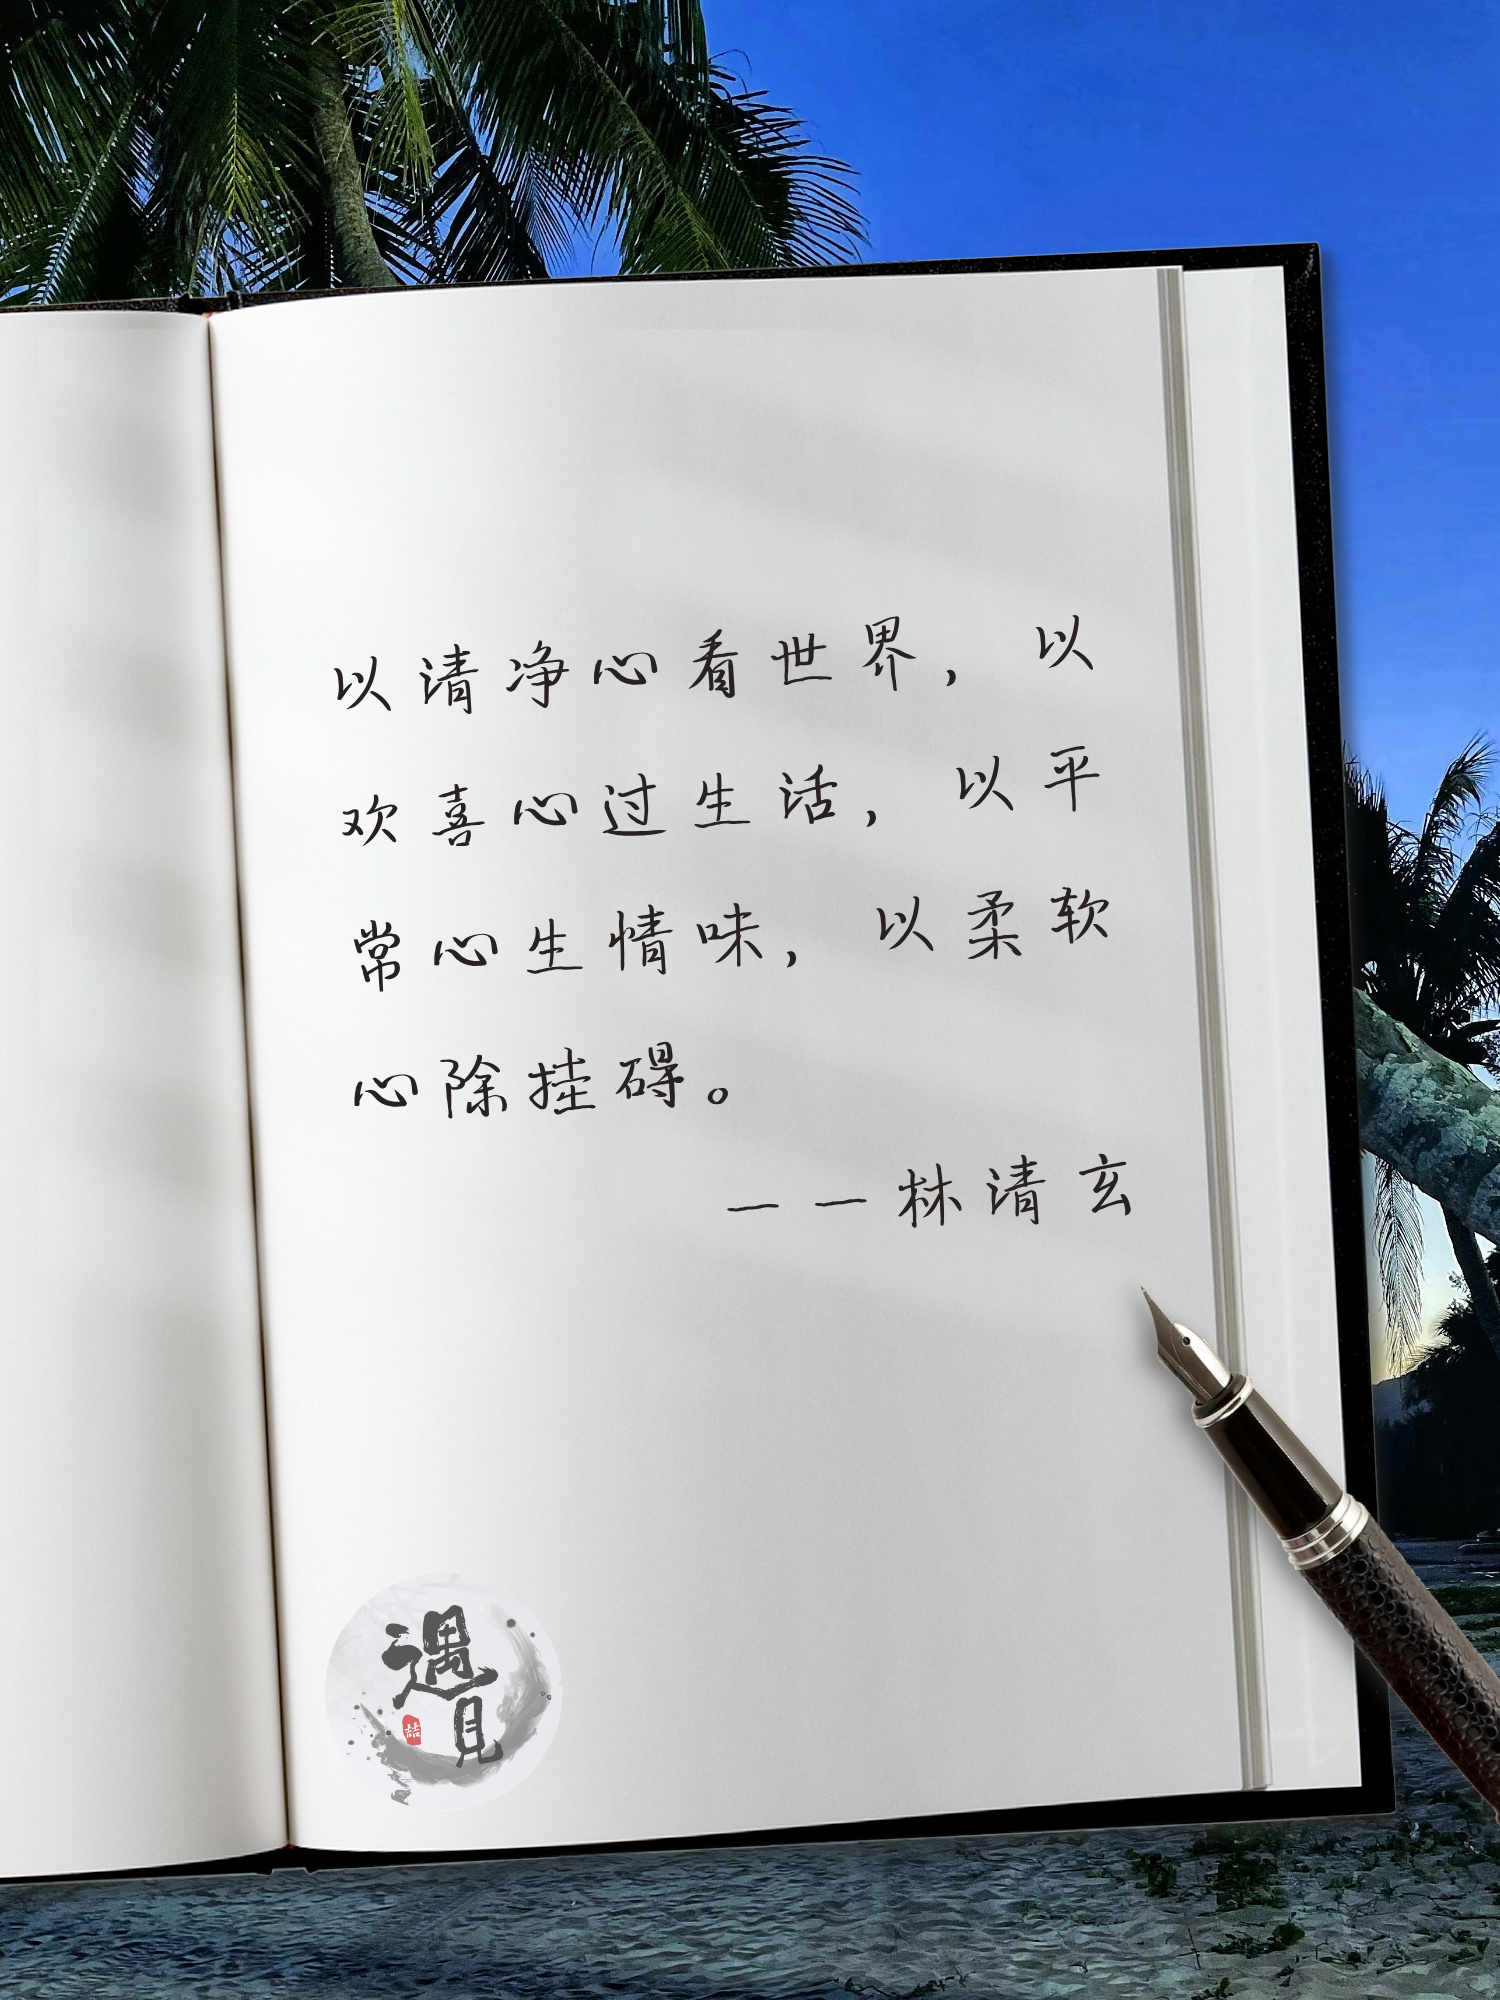 以清净心看世界，以
欢喜心过生活，以平
常心生情味，以柔软
心除挂碍。
——林清玄
遇
見
喆